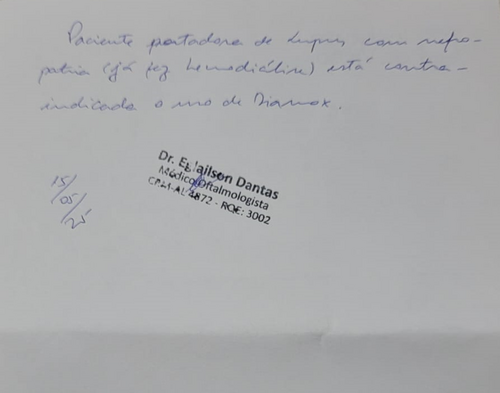 Paciente portadora de Lupus com nefro-
patia (já fez hemodiálise) está contra-
indicada o uso de Diamox.
Médico Oftalmologista
CRM-AL 4872 - RQE: 3002
Dr. Dantas
15/
05/
25